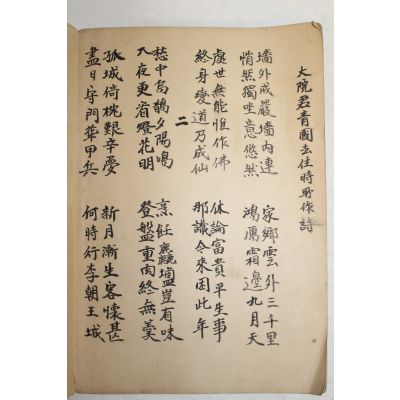 大院君青國去住時所作詩
墻外戒嚴墻內連 家鄉雲外三千里
悄然獨坐意悠然 鴻鴈霜邊九月天
處世無能惟作佛 休論富貴平生事
終身變道乃成仙 那識今來困此年
二
愁中烏鵲夕陽鳴 烹飪鹽豈有味
入夜更看燈花明 登盤重肉終無羹
孤城倚枕艱辛夢 新月漸生客懷甚
盡日守門甲兵 何時行李朝王城